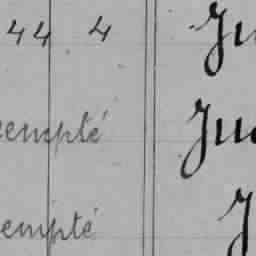 44 4 Ju
exempté Jud
exempté J